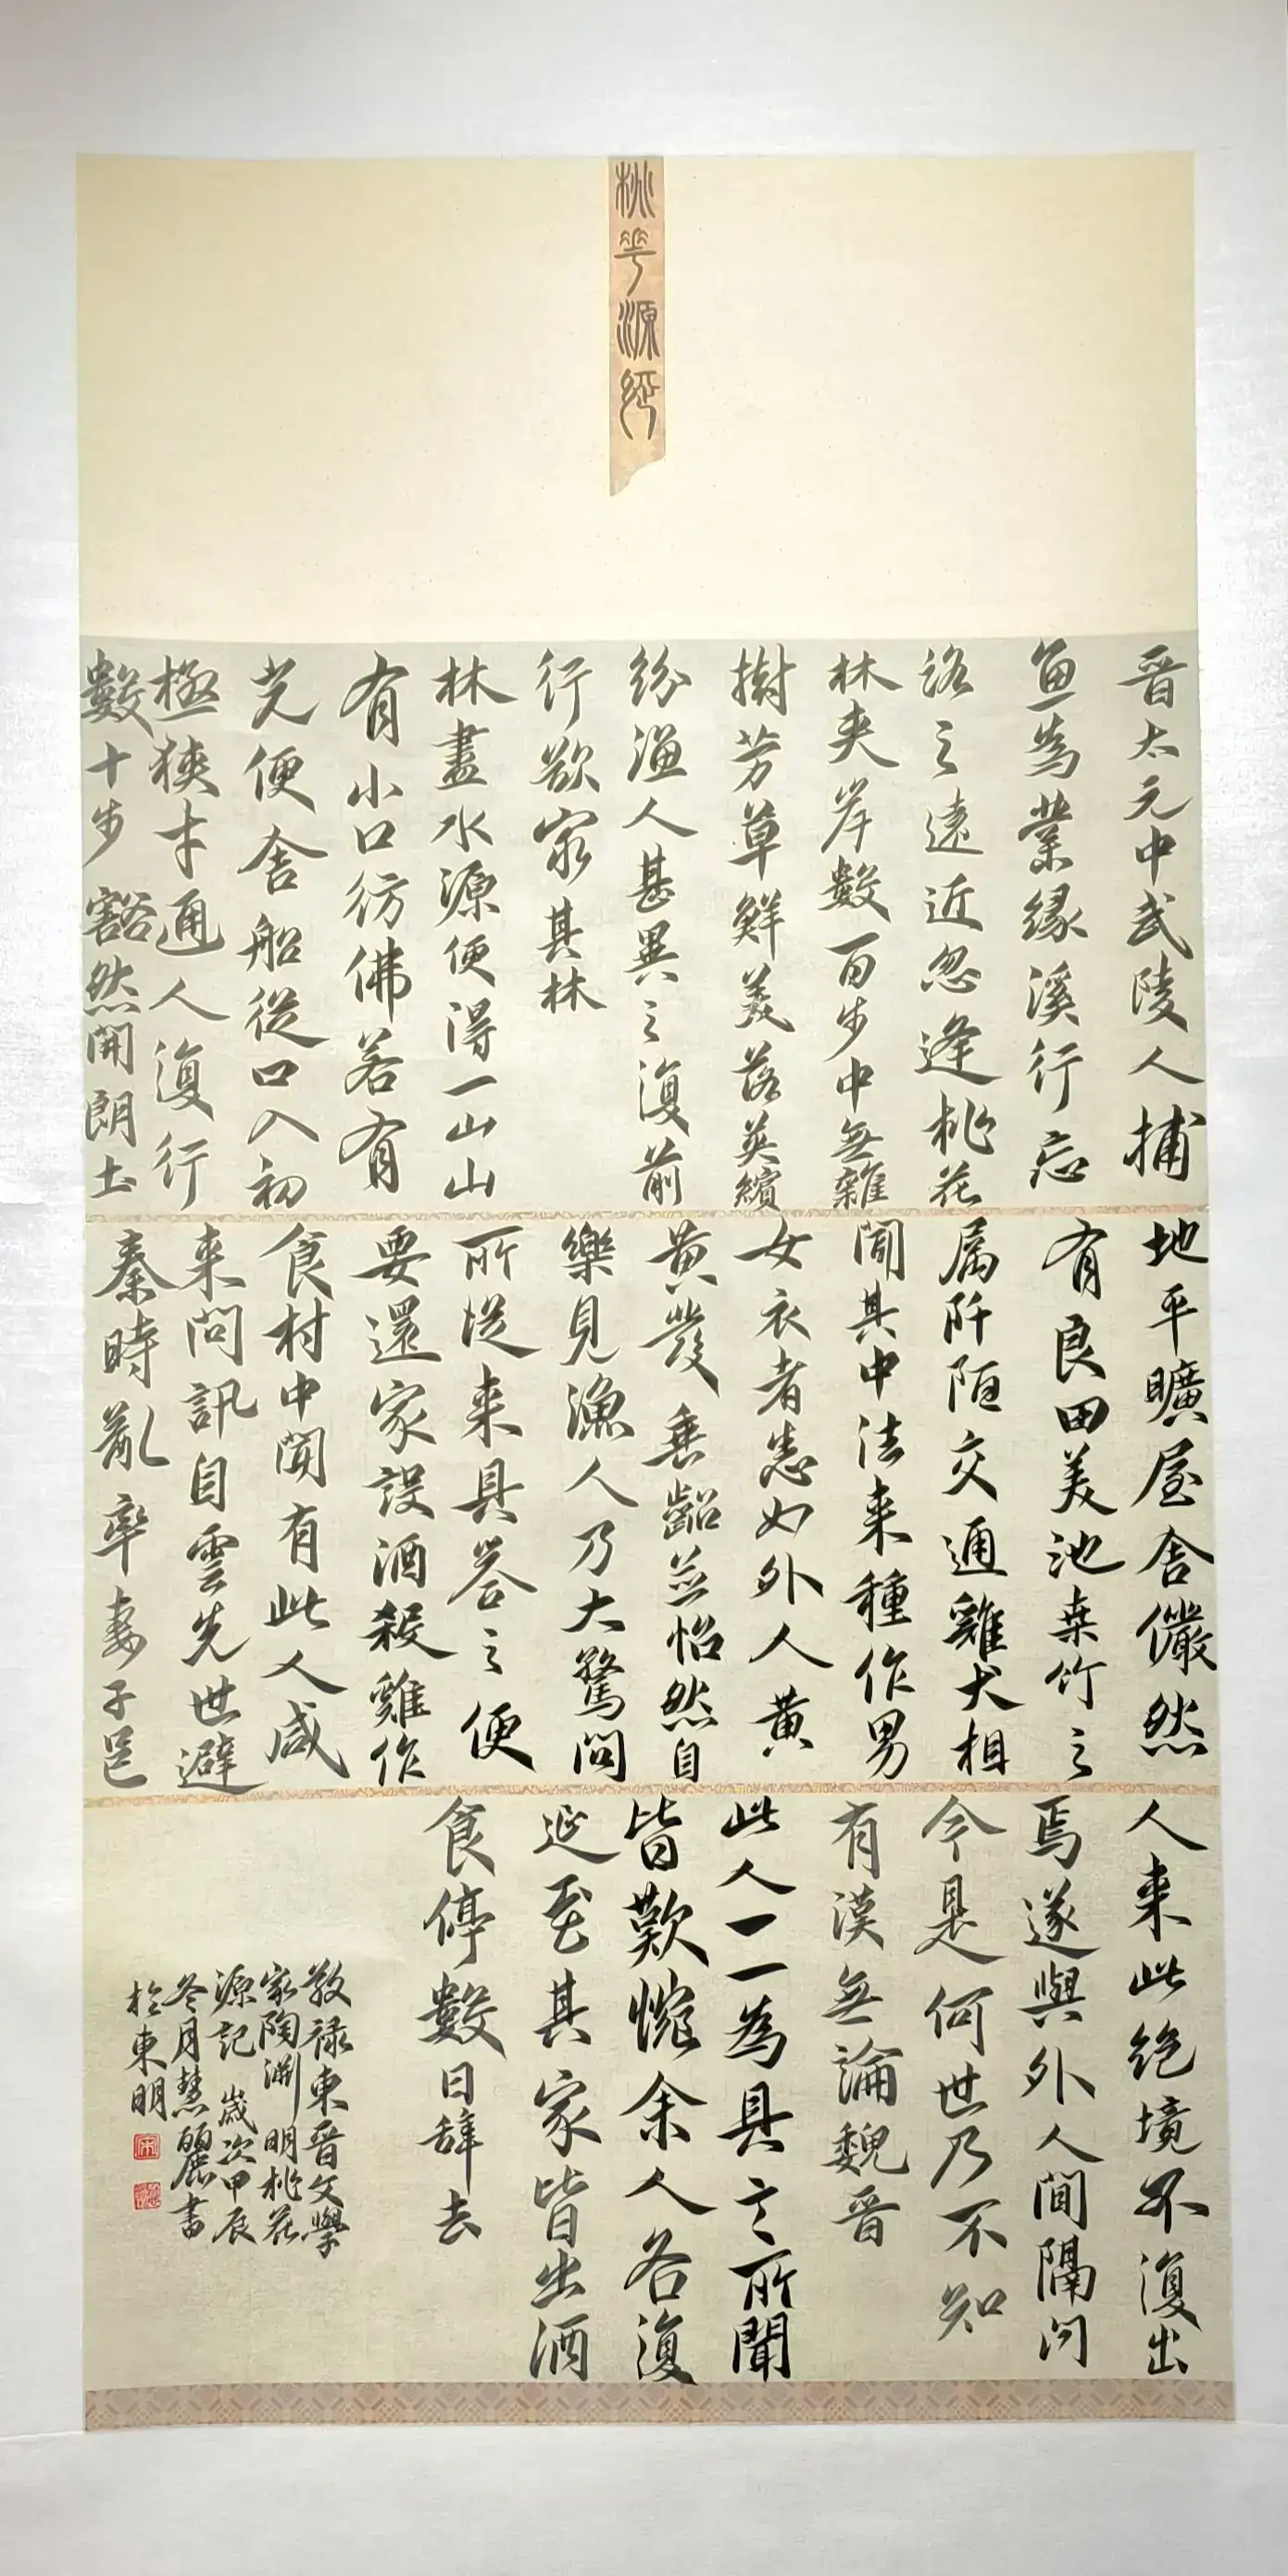 桃華源記
晋太元中武陵人捕
鱼為業缘溪行忘
路之遠近忽逢桃花
林夹岸數百步中無雜
樹芳草鮮美落英繽
紛漁人甚異之復前
行欲窮其林
林盡水源便得一山山
有小口彷佛若有
光便舍船從口入初
極狹才通人復行
數十步豁然開朗土
地平曠屋舍儼然
有良田美池桑竹之
属阡陌交通雞犬相
聞其中法来種作男
女衣者悉如外人黄
黄發垂齠並怡然自
樂見漁人乃大驚問
所從来具答之便
要還家設酒殺雞作
食村中聞有此人咸
来問訊自雲先世避
秦時亂率妻子邑
人来此絶境不復出
焉遂與外人間隔问
今是何世乃不知
有漢無論魏晋
此人一一為具言所聞
皆歎惋余人各復
延至其家皆出酒
食停數日辞去
敬録東晋文學
家陶渊明桃花
源記 歲次甲辰
冬月慧麗書
於東明